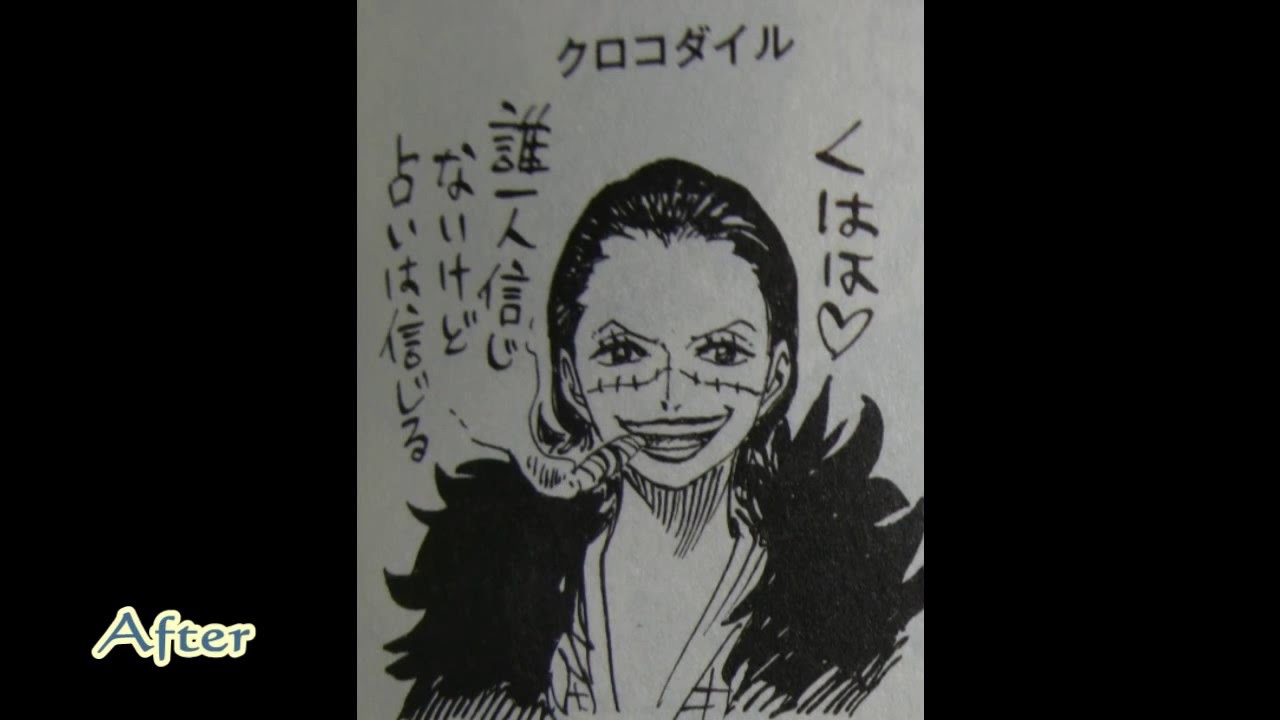 クロコダイル
くはは♡
誰一人信じ
ないけど
占いは信じる
After